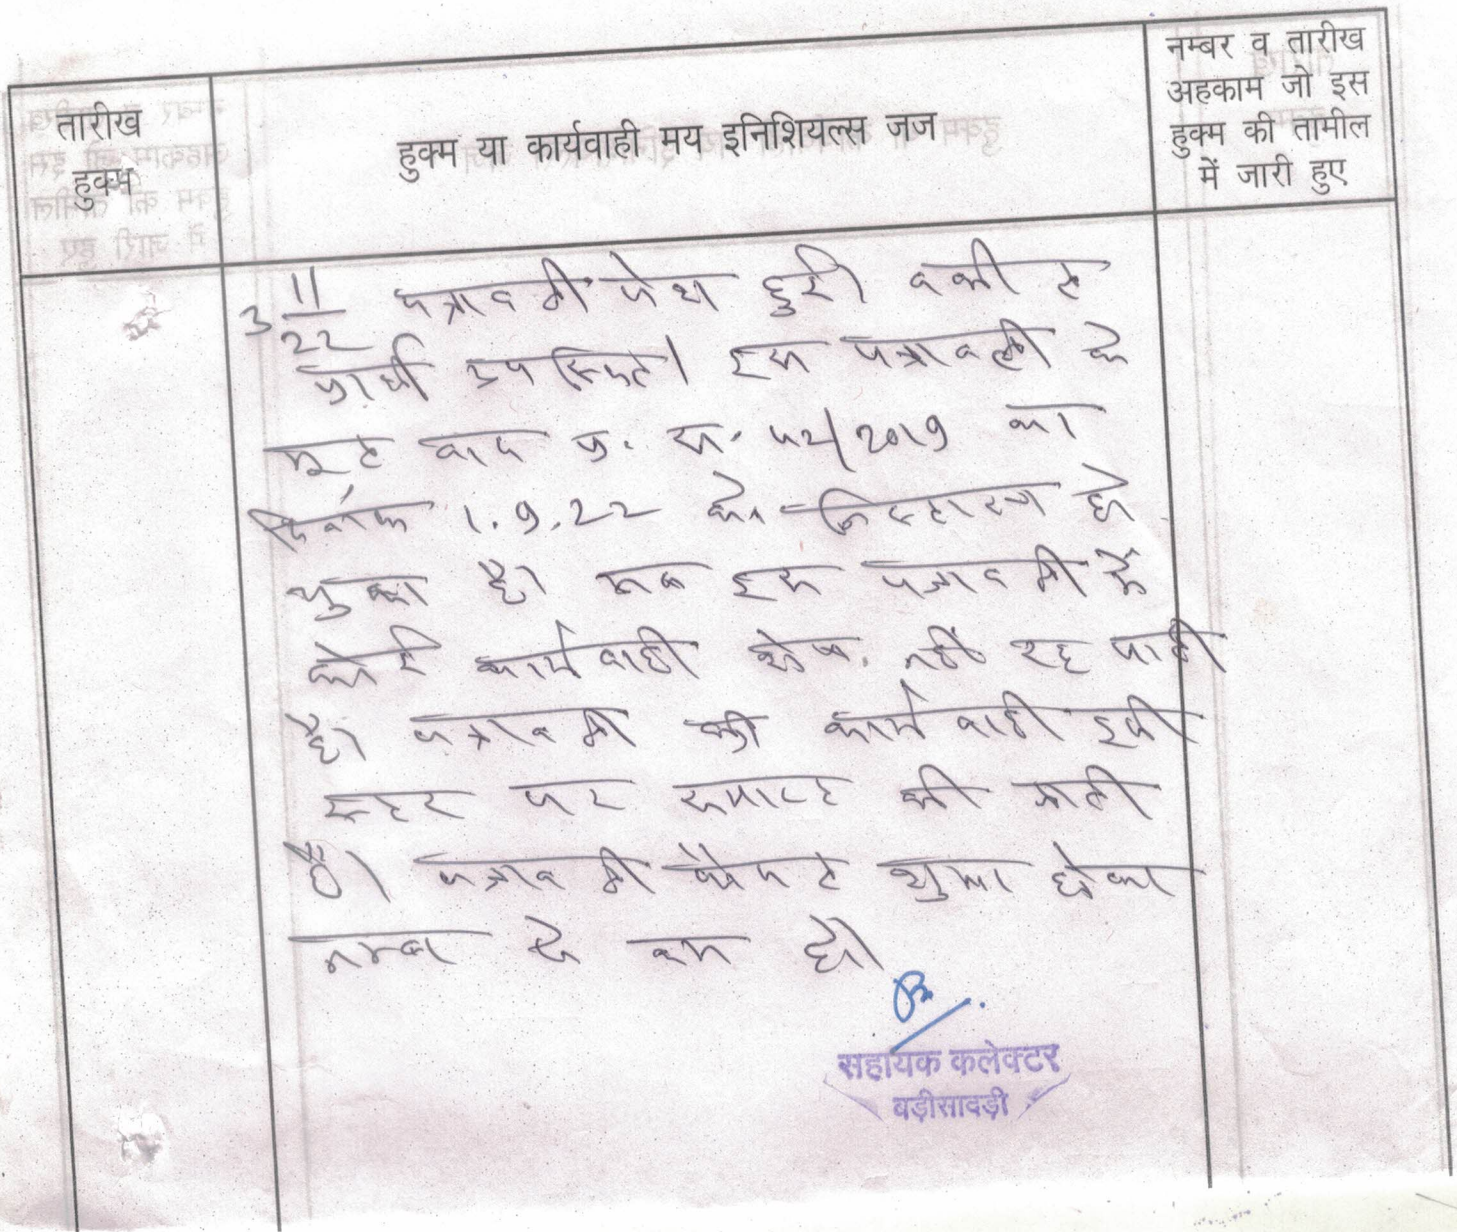 तारीख
हुक्म
हुक्म या कार्यवाही मय इनिशियल्स जज
नम्बर व तारीख
अहकाम जो इस
हुक्म की तामील
में जारी हुए
3 11/22 पत्रावली पेश हुई। वकील
प्रार्थी उपस्थित। इस पत्रावली के
मूल वाद प्र. स. /2019 का
दिनांक 1.9.22 को निस्तारण हो
चुका है। अब इस पत्रावली में
कोई कार्यवाही शेष नहीं रह जाती
है। पत्रावली की कार्यवाही इसी
स्तर पर समाप्त की जाती
है। पत्रावली फैसल शुमार होकर
नम्बर से कम हो।
सहायक कलेक्टर
बड़ीसादड़ी